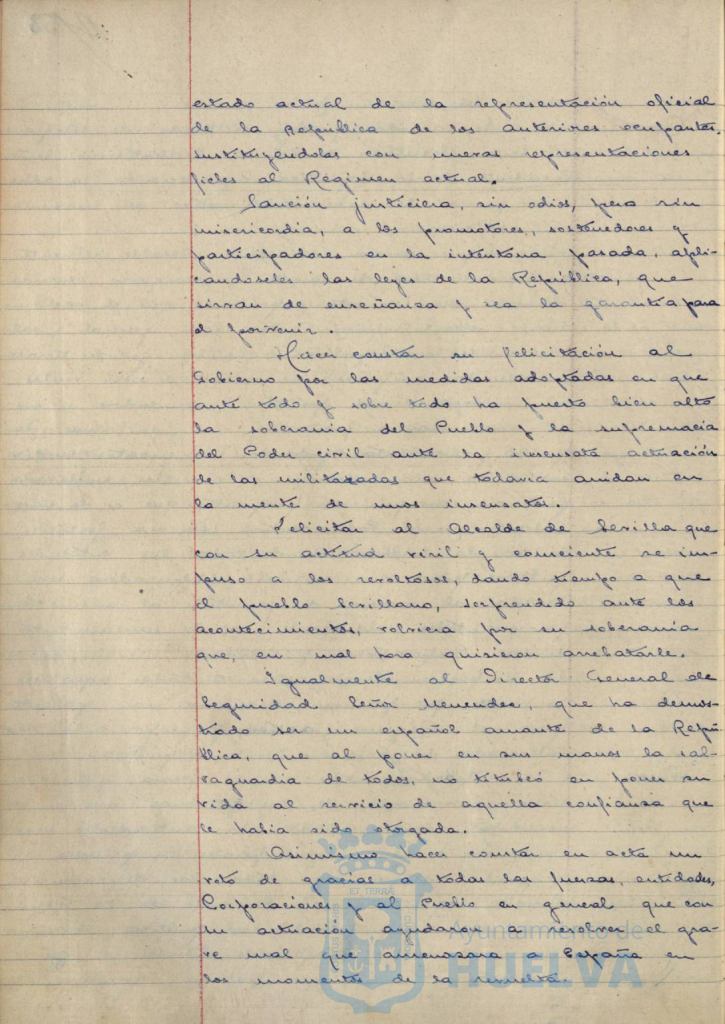 estado actual de la representación oficial
de la República de los anteriores ocupantes,
sustituyéndolas con nuevas representaciones
fieles al Regimen actual.
Sanción justiciera, sin odios, pero sin
misericordia, a los promotores, sostenedores y
participadores en la intentona pasada, apli-
candoseles las leyes de la República, que
sirvan de enseñanza y sea la garantía para
el porvenir.
Hacer constar su felicitación al
Gobierno por las medidas adoptadas en que
ante todo y sobre todo ha puesto bien alto
la soberania del Pueblo y la supremacia
del Poder civil ante la insensata actuación
de las militaradas que todavia anidan en
la mente de unos insensatos.
Felicitar al Alcalde de Sevilla que
con su actitud viril y consciente se im-
puso a los revoltosos, dando tiempo a que
el pueblo Sevillano, sorprendido ante los
acontecimientos, volviera por su soberania
que, en mal hora quisieron arrebatarle.
Igualmente al Director General de
Seguridad Señor Menendez, que ha demos-
trado ser un español amante de la Repú-
blica, que al poner en sus manos la sal-
vaguardia de todos, no titubeó en poner su
vida al servicio de aquella confianza que
le habia sido otorgada.
Asimismo hacer constar en acta un
voto de gracias a todas las fuerzas, entidades,
Corporaciones y al Pueblo en general que con
su actuación ayudaron a resolver el gra-
ve mal que amenazara a España en
los momentos de la revuelta.
Ayuntamiento de
HUELVA